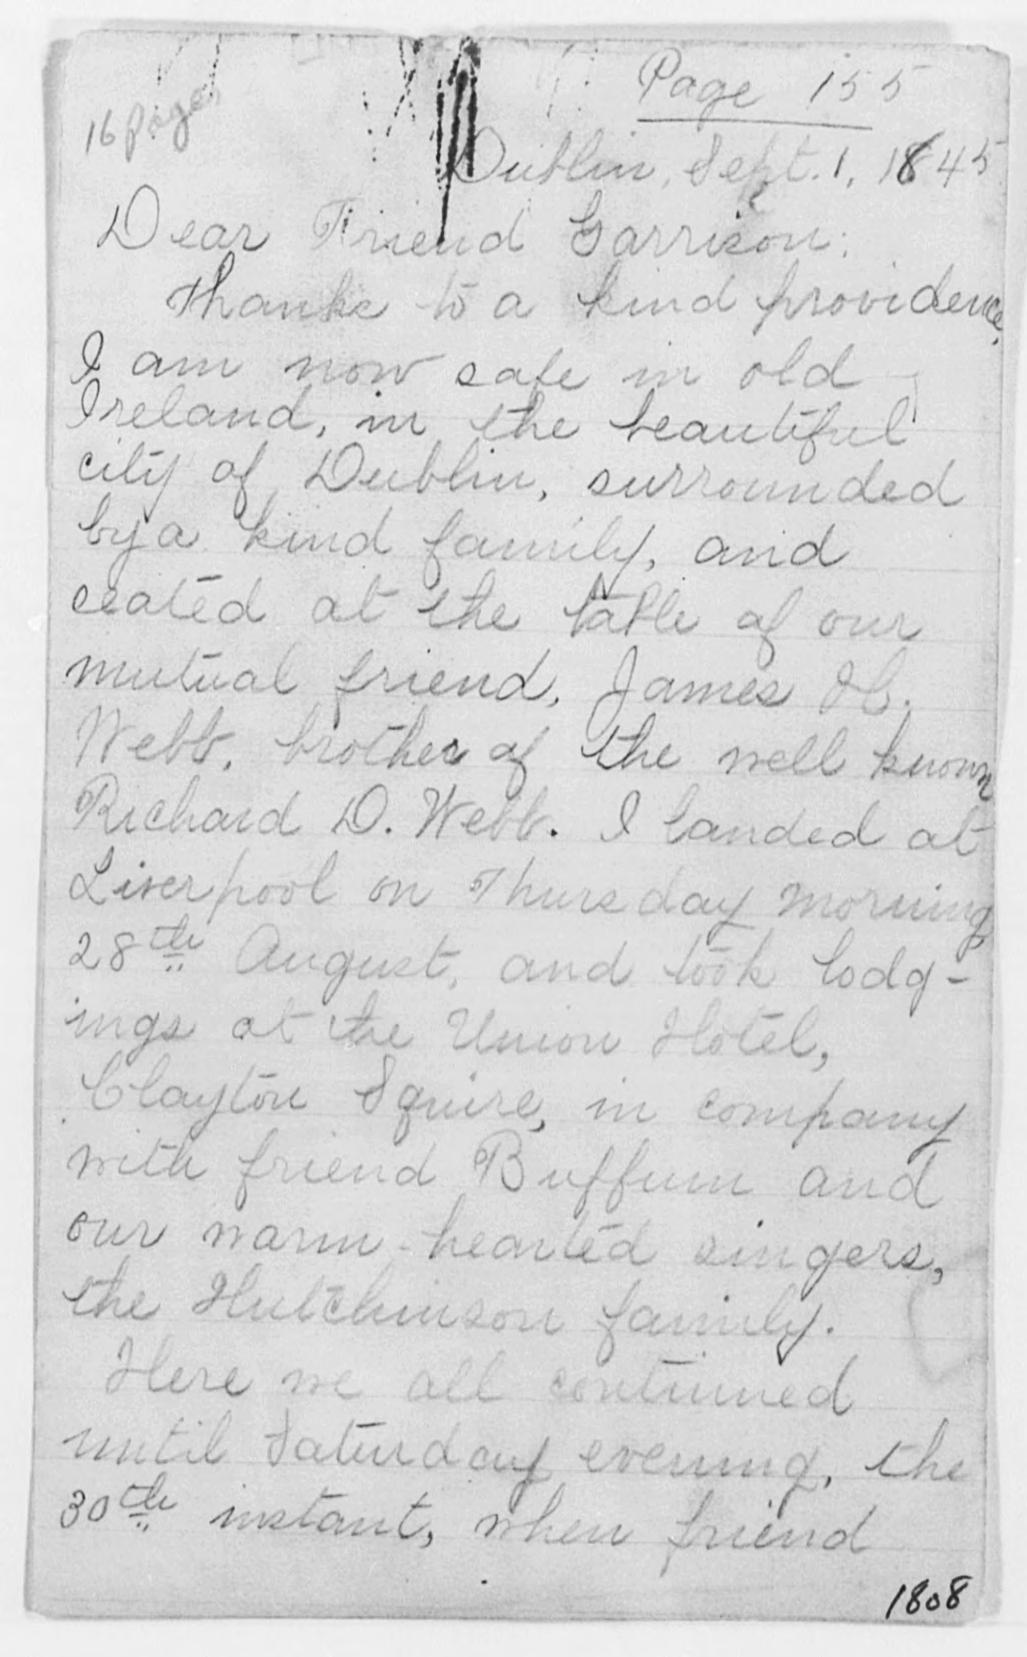 Page 155
16 pages
Dublin, Sept. 1, 1845
Dear Friend Garrison:
Thanks to a kind providence,
I am now safe in old
Ireland, in the beautiful
city of Dublin, surrounded
by a kind family, and
seated at the table of our
mutual friend, James H.
Webb, brother of the well known
Richard D. Webb. I landed at
Liverpool on Thursday morning
28th August, and took lodg-
ings at the Union Hotel,
Clayton Squire, in company
with friend Buffum and
our warm-hearted singers,
the Hutchinson family.
Here we all continued
until Saturday evening, the
30th instant, when friend
1808